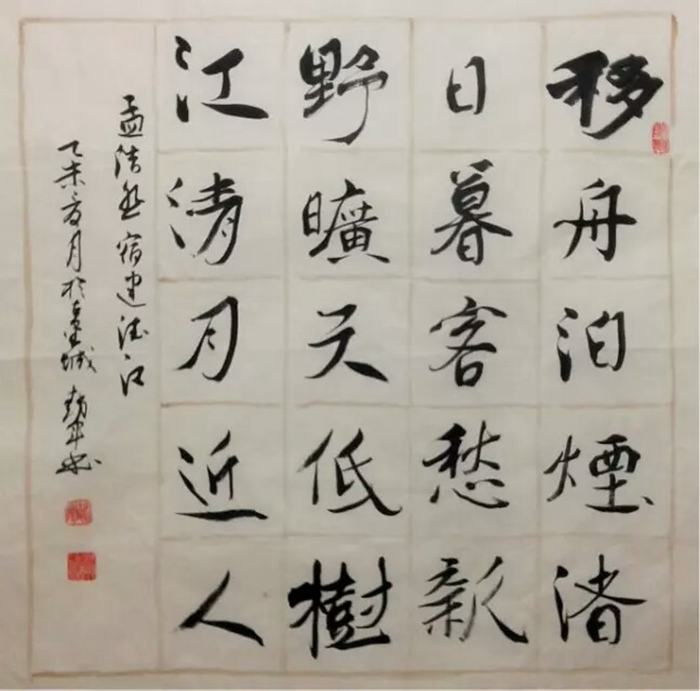 移舟泊煙渚
日暮客愁新
野曠天低樹
江清月近人
孟浩然宿建德江
乙未夏月於星城